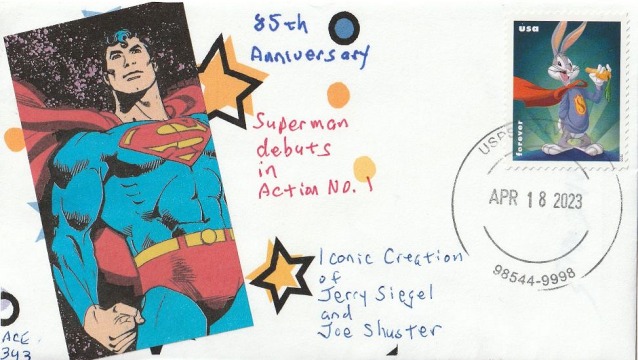 85th
Anniversary
usa
forever
Superman
debuts
in
Action No. 1
USPS
APR 18 2023
98544-9998
Iconic Creation
of
Jerry Siegel
and
Joe Shuster
ACE
343